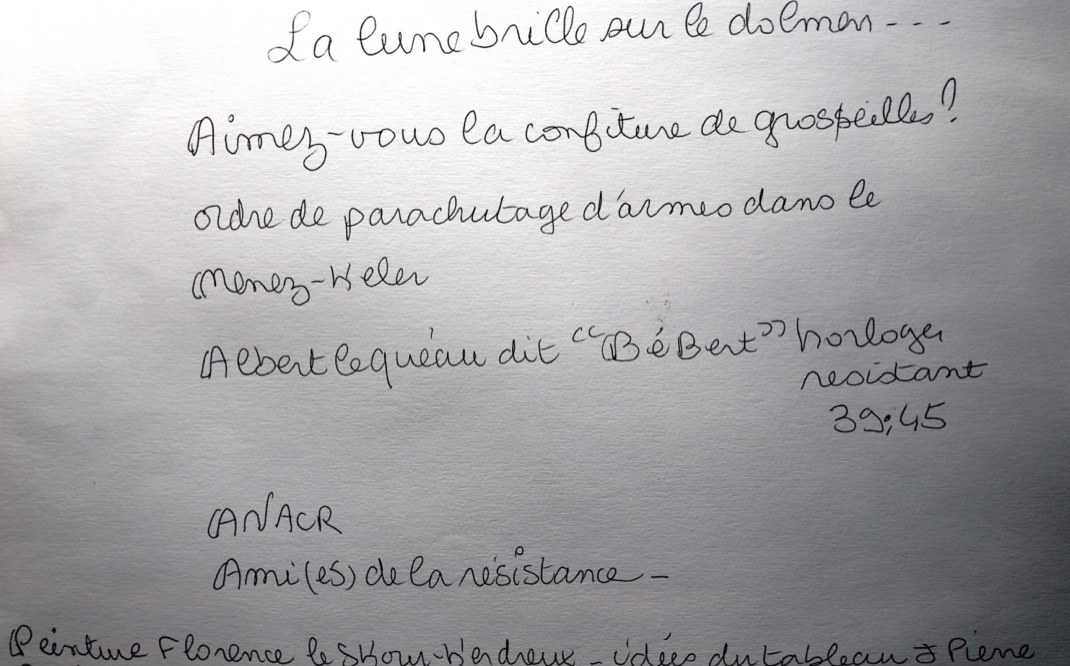 La lune brille sur le dolmen - - -
Aimez-vous la confiture de groseilles?
ordre de parachutage d'armes dans le
Menez-Heler
Albert le quéau dit "BéBert" horloger
resistant
39;45
ANACR
Ami(es) de la résistance -
Peinture Florence le - idées du tableau J Pierre